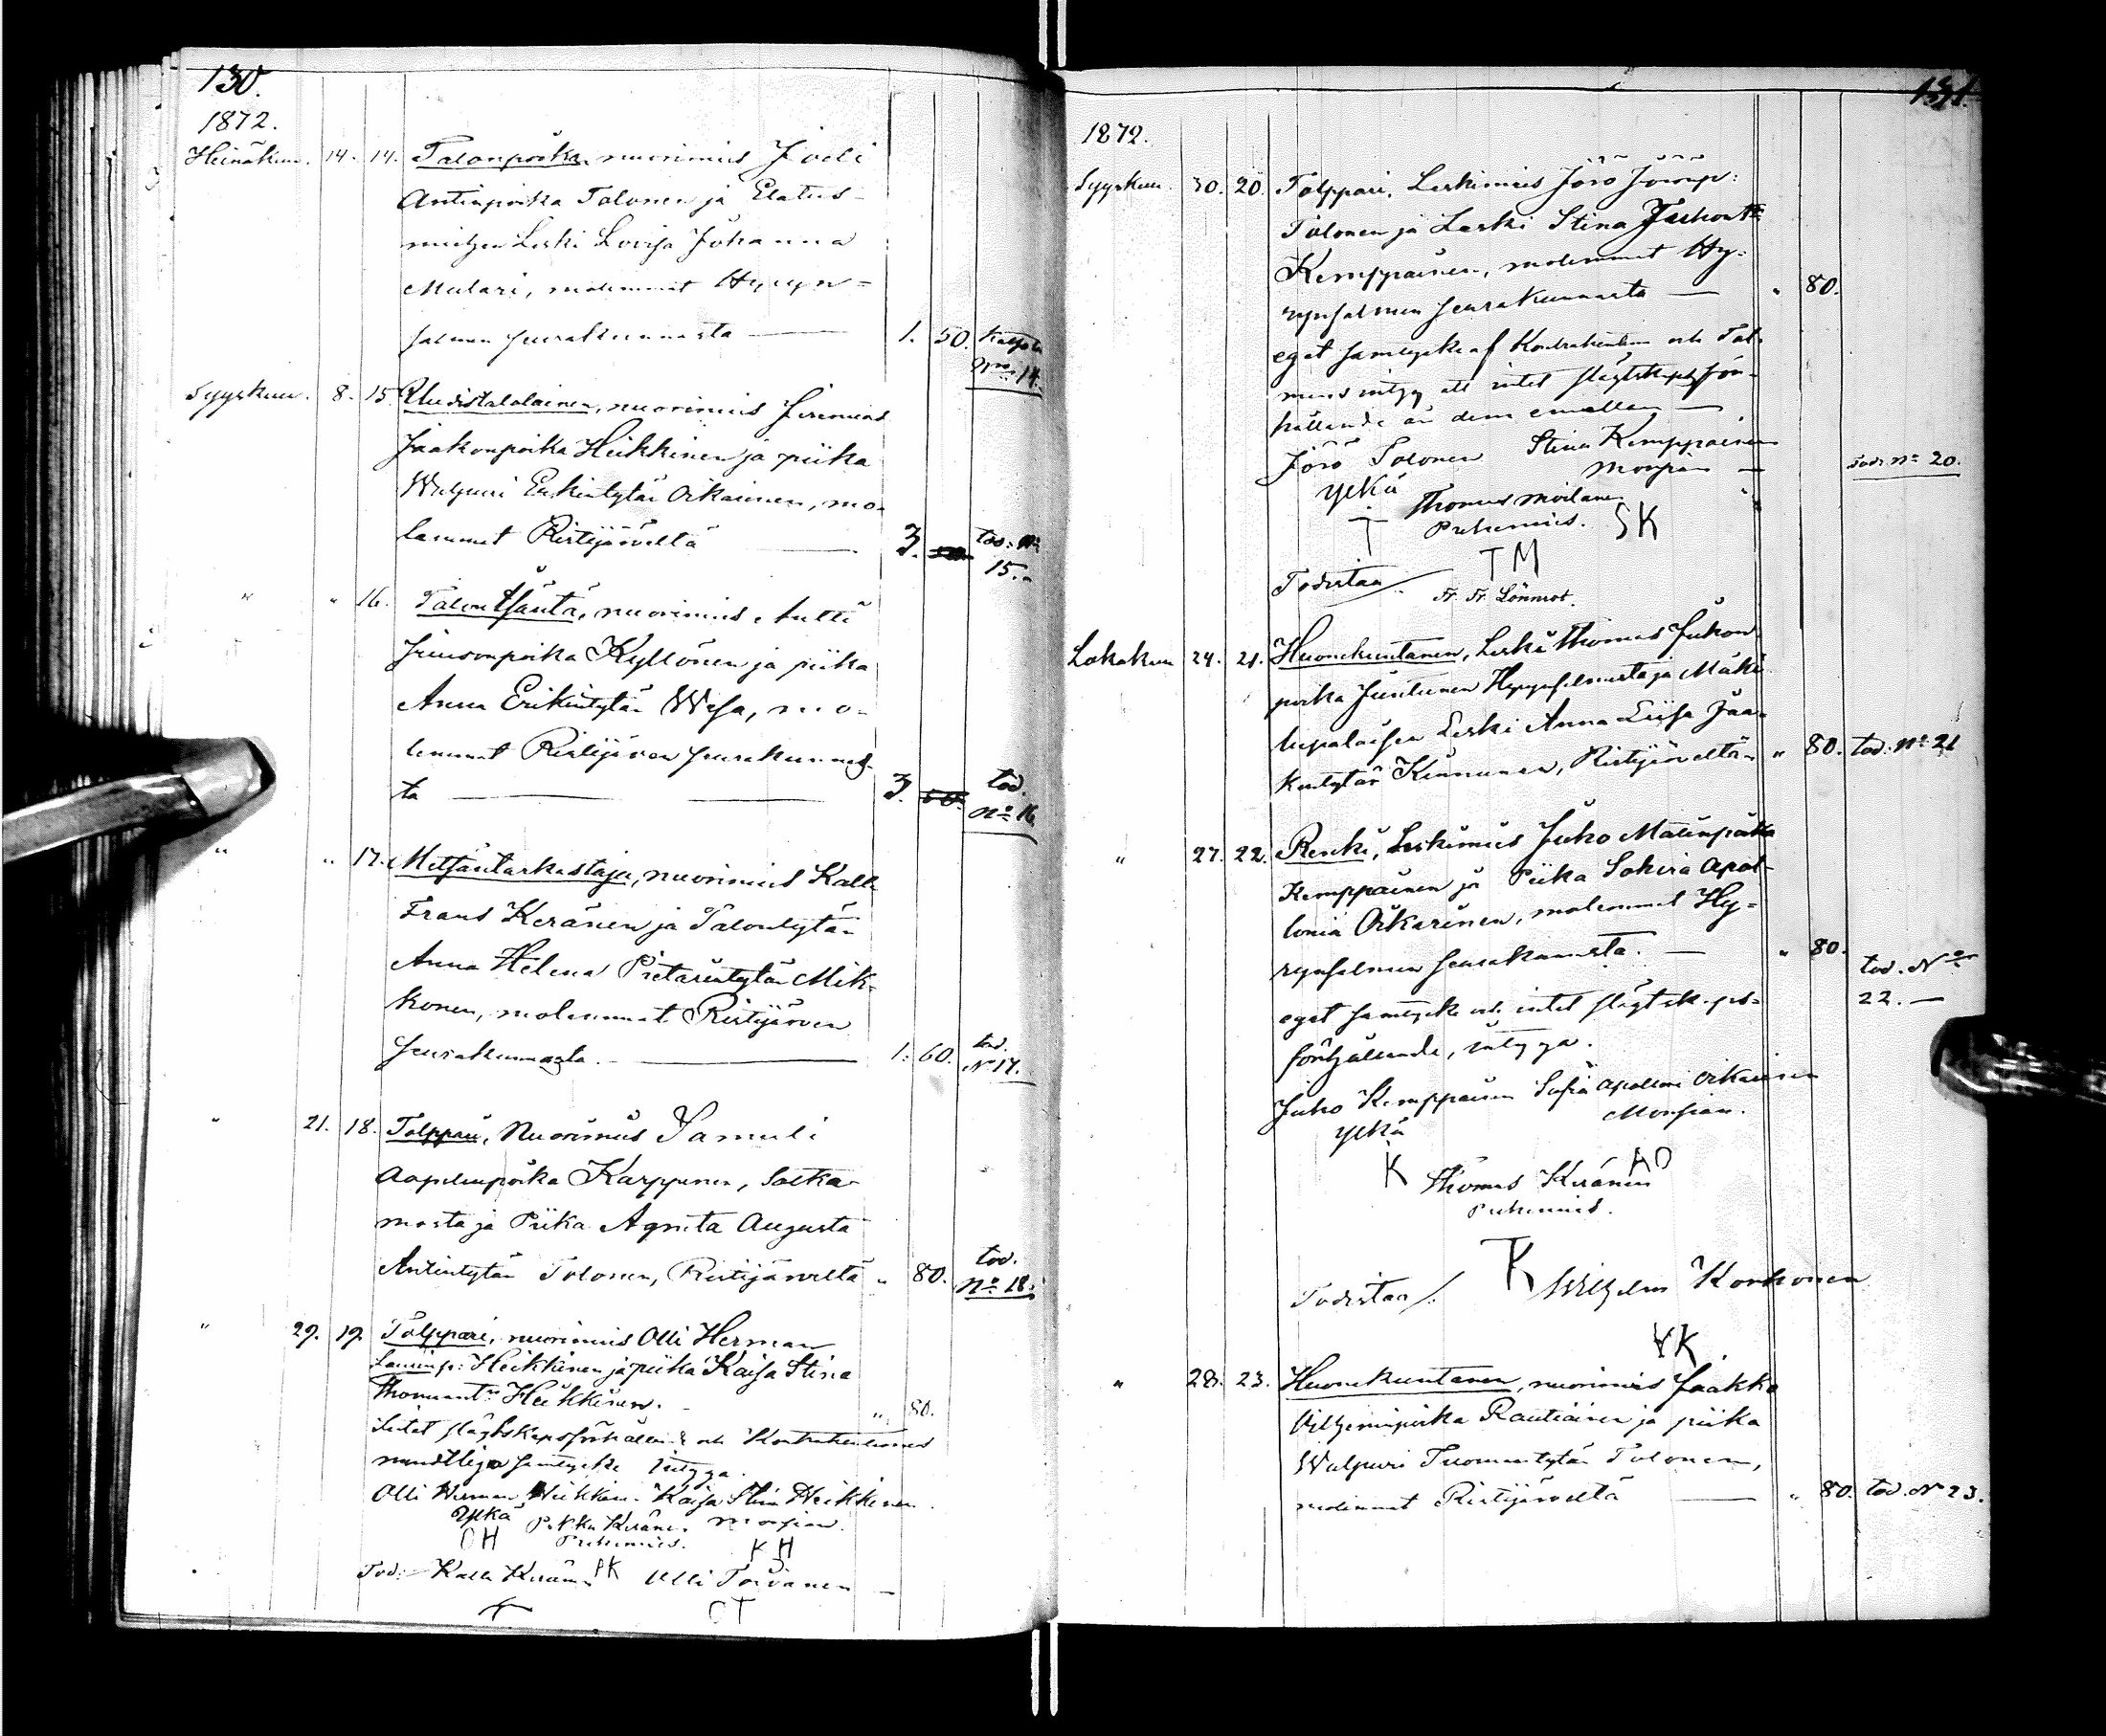 130.
1872.
Heinäkuu. 14. 14. Talonpoika, nuorimies Joeli
Antinpoika Tolonen ja Elatus-
miehen Leski Lovisa Johanna
Mulari, molemmat Hyryn=
salmen seurakunnasta — 1. 50.
No 14.
Syyskuu. 8. 15. Uudistalolainen, nuorimies Jeremias
Jaakonpoika Heikkinen ja piika
Walpuri Erkintytär Oikarinen, mo-
lemmat Ristijärveltä — 3. tod. No
15.
" " 16. Talon Isäntä, nuorimies Antti
Juusonpoika Kyllönen ja piika
Anna Erikintytär Wesa, mo-
lemmat Ristijärven seurakunnas-
ta — 3. 60. tod.
No 16
" " 17. Metsäntarkastaja, nuorimies Kalle
Frans Keränen ja Talontytär
Anna Helena Pietarintytär Mik-
konen, molemmat Ristijärven
seurakunnasta. — 1. 60. tod.
No 17.
" 21. 18. Tolppari, Nuorimies Samuli
Aapelinpoika Karppinen, Sotka-
mosta ja Piika Agneta Augusta
Antintytär Tolonen, Ristijärveltä " 80. tod.
No 18.
" 29. 19. Tolppari, nuorimies Olli Herman
Laurinp: Heikkinen ja piika Kaisa Stina
Thomaant: Heikkinen. " 80.
Intet slägtskapsförhållande och Kontrahenternes
mundtliga samtycke intyga.
Olli Herman Heikkinen Kaisa Stina Heikkinen
Ylkä Pekka Keränen morsian.
OH Puhemies. KH
Tod: Kalle Keränen PK Olli Toivanen —
OT
131.
1872.
Syyskuu. 30. 20. Tolppari, Leskimies Jörö Jöröup:
Tolonen ja Leski Stina
Kemppainen, molemmat Hy-
rynsalmen seurakunnasta — " 80.
eget samtycke af Kontrahenterna och Tal-
mens intyg att intet slägtskapsför-
hållande är dem emellan —
Jörö Tolonen Stina Kemppainen
Ylkä morsian —
tod. No 20.
Thomas Moilanen
Puhemies. SK
TM
Todistaa Fr. Fr. Lönnrot.
Lokakuu 24. 21. Huonekuntanen, Leski Thomas Juhon
poika Juntunen Hyrynsalmesta ja Mäki
tupalaisen Leski Anna Liisa Jaa-
kontytär Kinnunen, Ristijärveltä " 80. tod. No 21
" 27. 22. Renki, Leskimies Juho Matinpoika
Kemppainen ja Piika Sohvia Apol-
lonia Oikarinen, molemmat Hy=
rynsalmen seurakunnasta. — " 80.
tod. No
22. —
eget samtycke och intet slägtskaps=
förhållande, intyga.
Juho Kemppainen Sofia Apolloni Oikarinen
Ylkä Morsian.
K AO
Thomas Keränen
Puhemies.
TK
Todistaa /. Wilhelm Korhonen
VK
" 28. 23. Huonekuntanen, nuorimies Jaakko
Vilheminpoika Rautiainen ja piika
Walpuri Tuomaantytär Tolonen,
molemmat Ristijärveltä — " 80. tod. No 23.